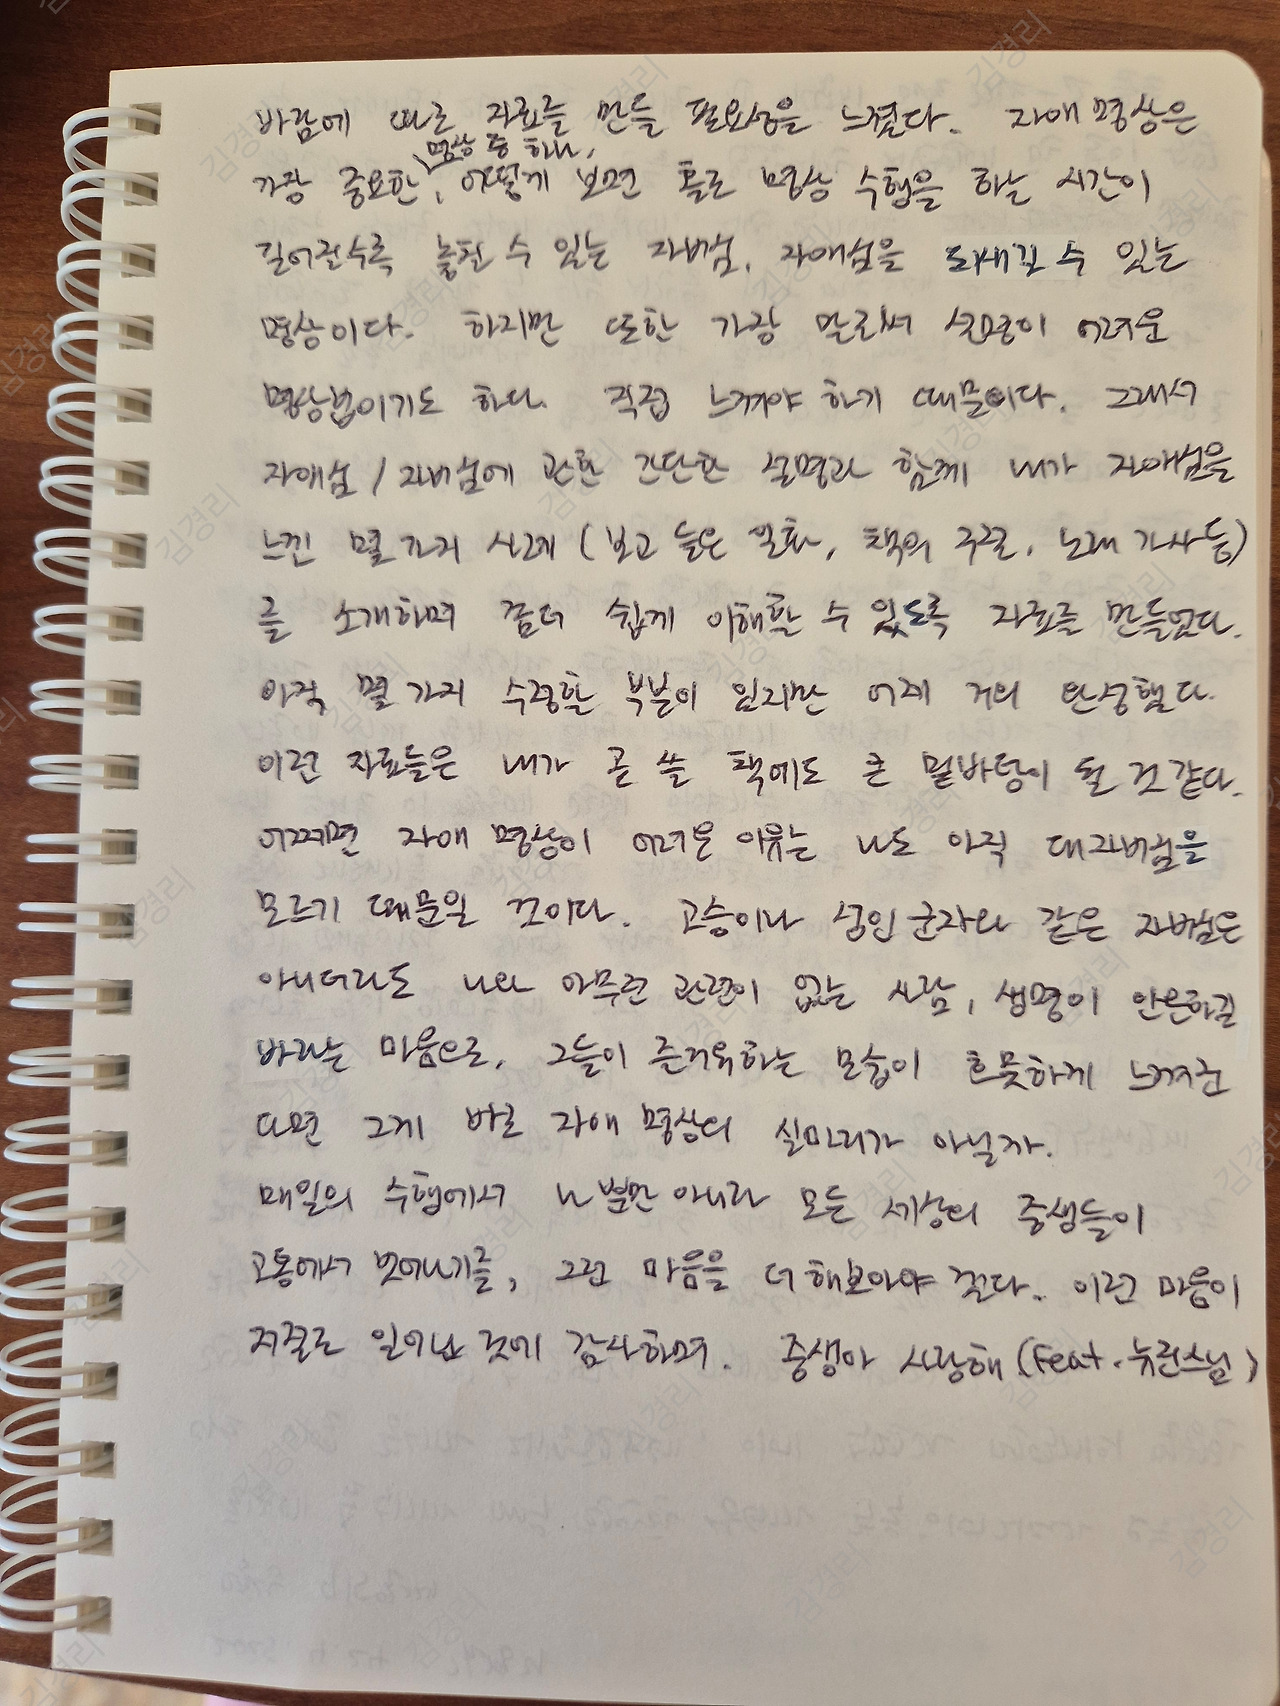 바람에 따로 자료를 만들 필요성을 느꼈다. 자애 명상은
명상 중 하나,
가장 중요한, 어떻게 보면 홀로 명상 수행을 하는 시간이
길어질수록 놓칠 수 있는 자비심, 자애심을 되새길 수 있는
명상이다. 하지만 또한 가장 말로써 설명이 어려운
명상법이기도 하다. 직접 느껴야 하기 때문이다. 그래서
자애심 / 자비심에 관한 간단한 설명과 함께 내가 자애심을
느낀 몇 가지 사례 (보고 들은 일화, 책의 구절, 노래 가사 등)
를 소개하며 좀더 쉽게 이해할 수 있도록 자료를 만들었다.
아직 몇 가지 수정할 부분이 있지만 어제 거의 완성했다.
이런 자료들은 내가 곧 쓸 책에도 큰 밑바탕이 될 것 같다.
어쩌면 자애 명상이 어려운 이유는 나도 아직 대자비심을
모르기 때문일 것이다. 고승이나 성인 군자와 같은 자비심은
아니더라도 나와 아무런 관련이 없는 사람, 생명이 안온하길
바라는 마음으로, 그들이 즐거워하는 모습이 흐뭇하게 느껴진
다면 그게 바로 자애 명상의 실마리가 아닐까.
매일의 수행에서 나 뿐만 아니라 모든 세상의 중생들이
고통에서 벗어나기를, 그런 마음을 더 해보아야 겠다. 이런 마음이
저절로 일어난 것에 감사하며. 중생아 사랑해 (Feat. 뉴진스님)
김경리